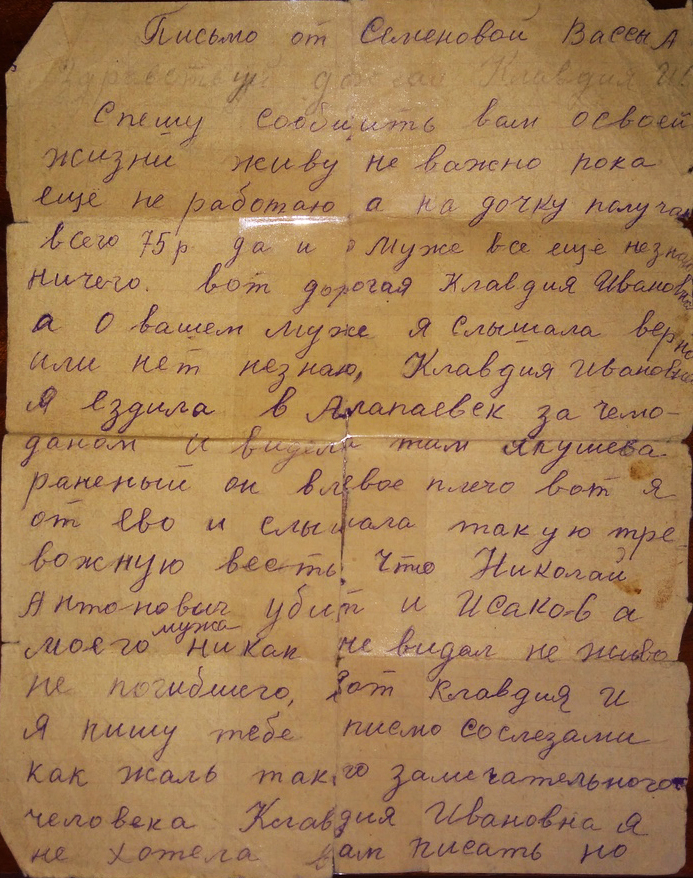 Письмо от Семеновой Вассы А
Здравствуй дорогая Клавдия И
Спешу сообщить вам освоей
жизни живу не важно пока
еще не работаю а на дочку получаю
всего 75р да и о муже все еще незнаю
ничего. вот дорогая Клавдия Ивановна
а о вашем муже я слышала верно
или нет незнаю, Клавдия Ивановна
Я ездила в Алапаевск за чемо-
даном и видела там якушева
раненый он влевое плечо вот я
от ево и слышала такую тре
вожную весть что Николай
Антонович убит и Исаков а
моего мужа никак не видал не живо
не погибшего, вот Клавдия И
Я пишу тебе писмо сослезами
как жаль такго замечательного
человека Клавдия Ивановна я
не хотела вам писать но